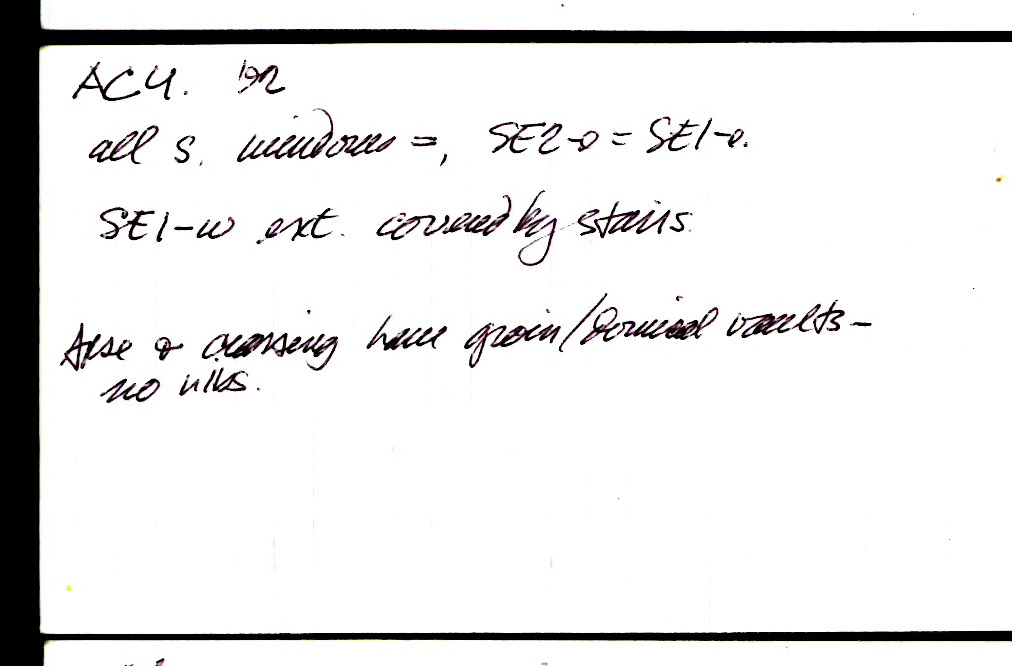 ACY. '92
all s. windows =, SE2-e = SE1-e.
SE1-w ext. covered by stairs.
Apse & crossing have groin/domical vaults -
no ribs.